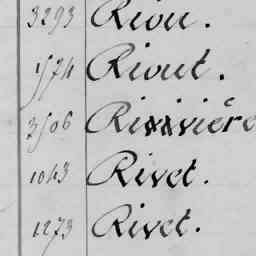 3293 Riou.
1574 Riout.
3506 Rivière
1043 Rivet.
1273 Rivet.